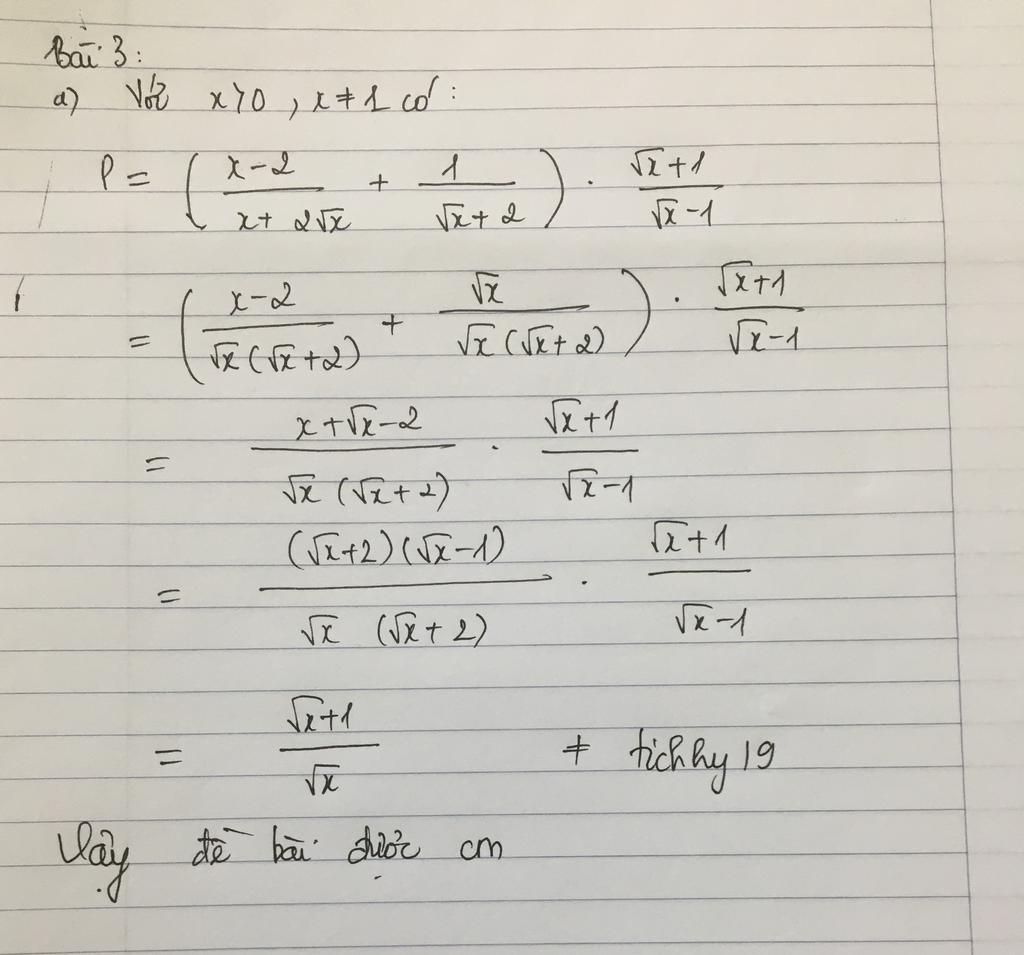 Bài 3:
a) Với x>0, x≠1 có:
P = ( (x-2)/(x+2√x) + 1/(√x+2) ) . (√x+1)/(√x-1)
= ( (x-2)/(√x(√x+2)) + √x/(√x(√x+2)) ) . (√x+1)/(√x-1)
= (x+√x-2)/(√x(√x+2)) . (√x+1)/(√x-1)
= ((√x+2)(√x-1))/(√x(√x+2)) . (√x+1)/(√x-1)
= (√x+1)/√x ≠ tichhy19
Vậy đề bài được cm